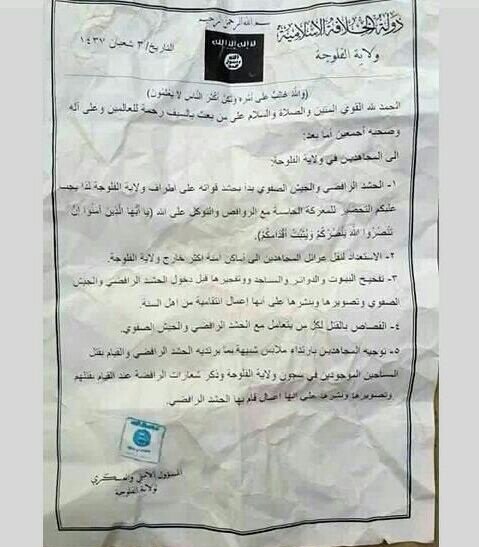 بسم الله الرحمن الرحيم
دولة الخلافة الاسلامية
ولاية الفلوجة
التاريخ/ ٣ شعبان ١٤٣٧
لا اله الا الله
(والله غالب على امره ولكن اكثر الناس لا يعلمون)
الحمد لله القوي المتين والصلاة والسلام على من بعث بالسيف رحمة للعالمين وعلى آله
وصحبه أجمعين أما بعد:
الى المجاهدين في ولاية الفلوجة:
١- الحشد الرافضي والجيش الصفوي بدا بحشد قواته على اطراف ولاية الفلوجة لذا يجب
عليكم التحضير للمعركة الحاسمة مع الروافض والتوكل على الله (يا أيها الذين آمنوا إن
تنصروا الله ينصركم ويثبت أقدامكم).
٢- الاستعداد لنقل عوائل المجاهدين الى اماكن امنة اكثر خارج ولاية الفلوجة.
٣- تفخيخ البيوت والدوائر والمساجد وتفجيرها قبل دخول الحشد الرافضي والجيش
الصفوي وتصويرها وبنشرها على انها اعمال انتقامية من اهل السنة.
٤- القصاص بالقتل لكل من يتعامل مع الحشد الرافضي والجيش الصفوي.
٥- توجيه المجاهدين بارتداء ملابس شبيهة بما يرتديه الحشد الرافضي والقيام بقتل
المساجين الموجودين في سجون ولاية الفلوجة وذكر شعارات الرافضة عند القيام بقتلهم
وتصويرها ونشرها على انها اعمال قام بها الحشد الرافضي.
المسؤول الامني والعسكري
لولاية الفلوجة